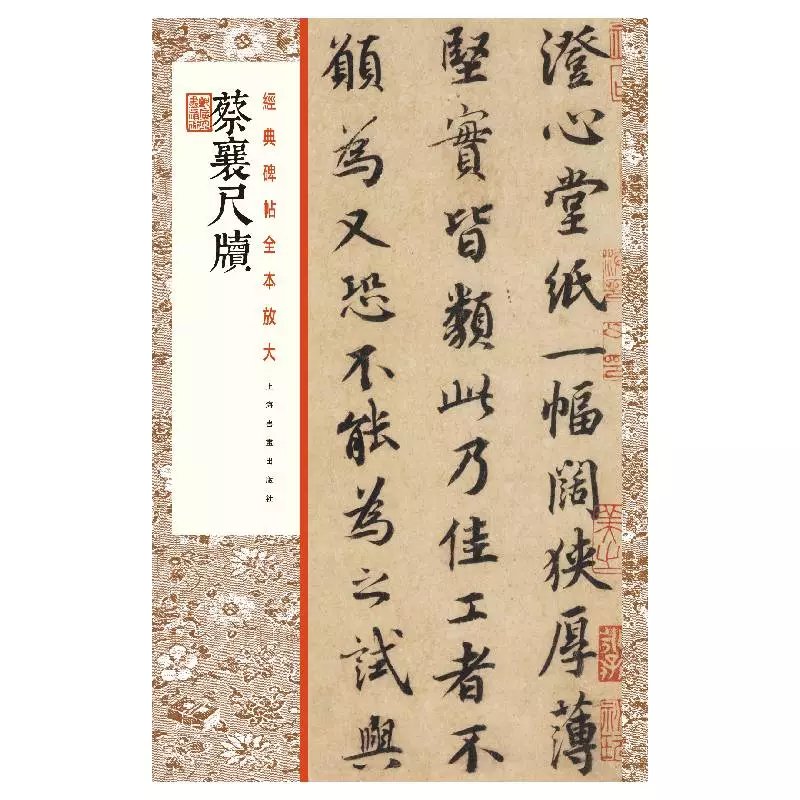 澄心堂紙一幅闊狹厚薄
堅實皆類此乃佳工者不
願為又恐不能為之試與
經典碑帖全本放大
蔡襄尺牘
上海書畫出版社